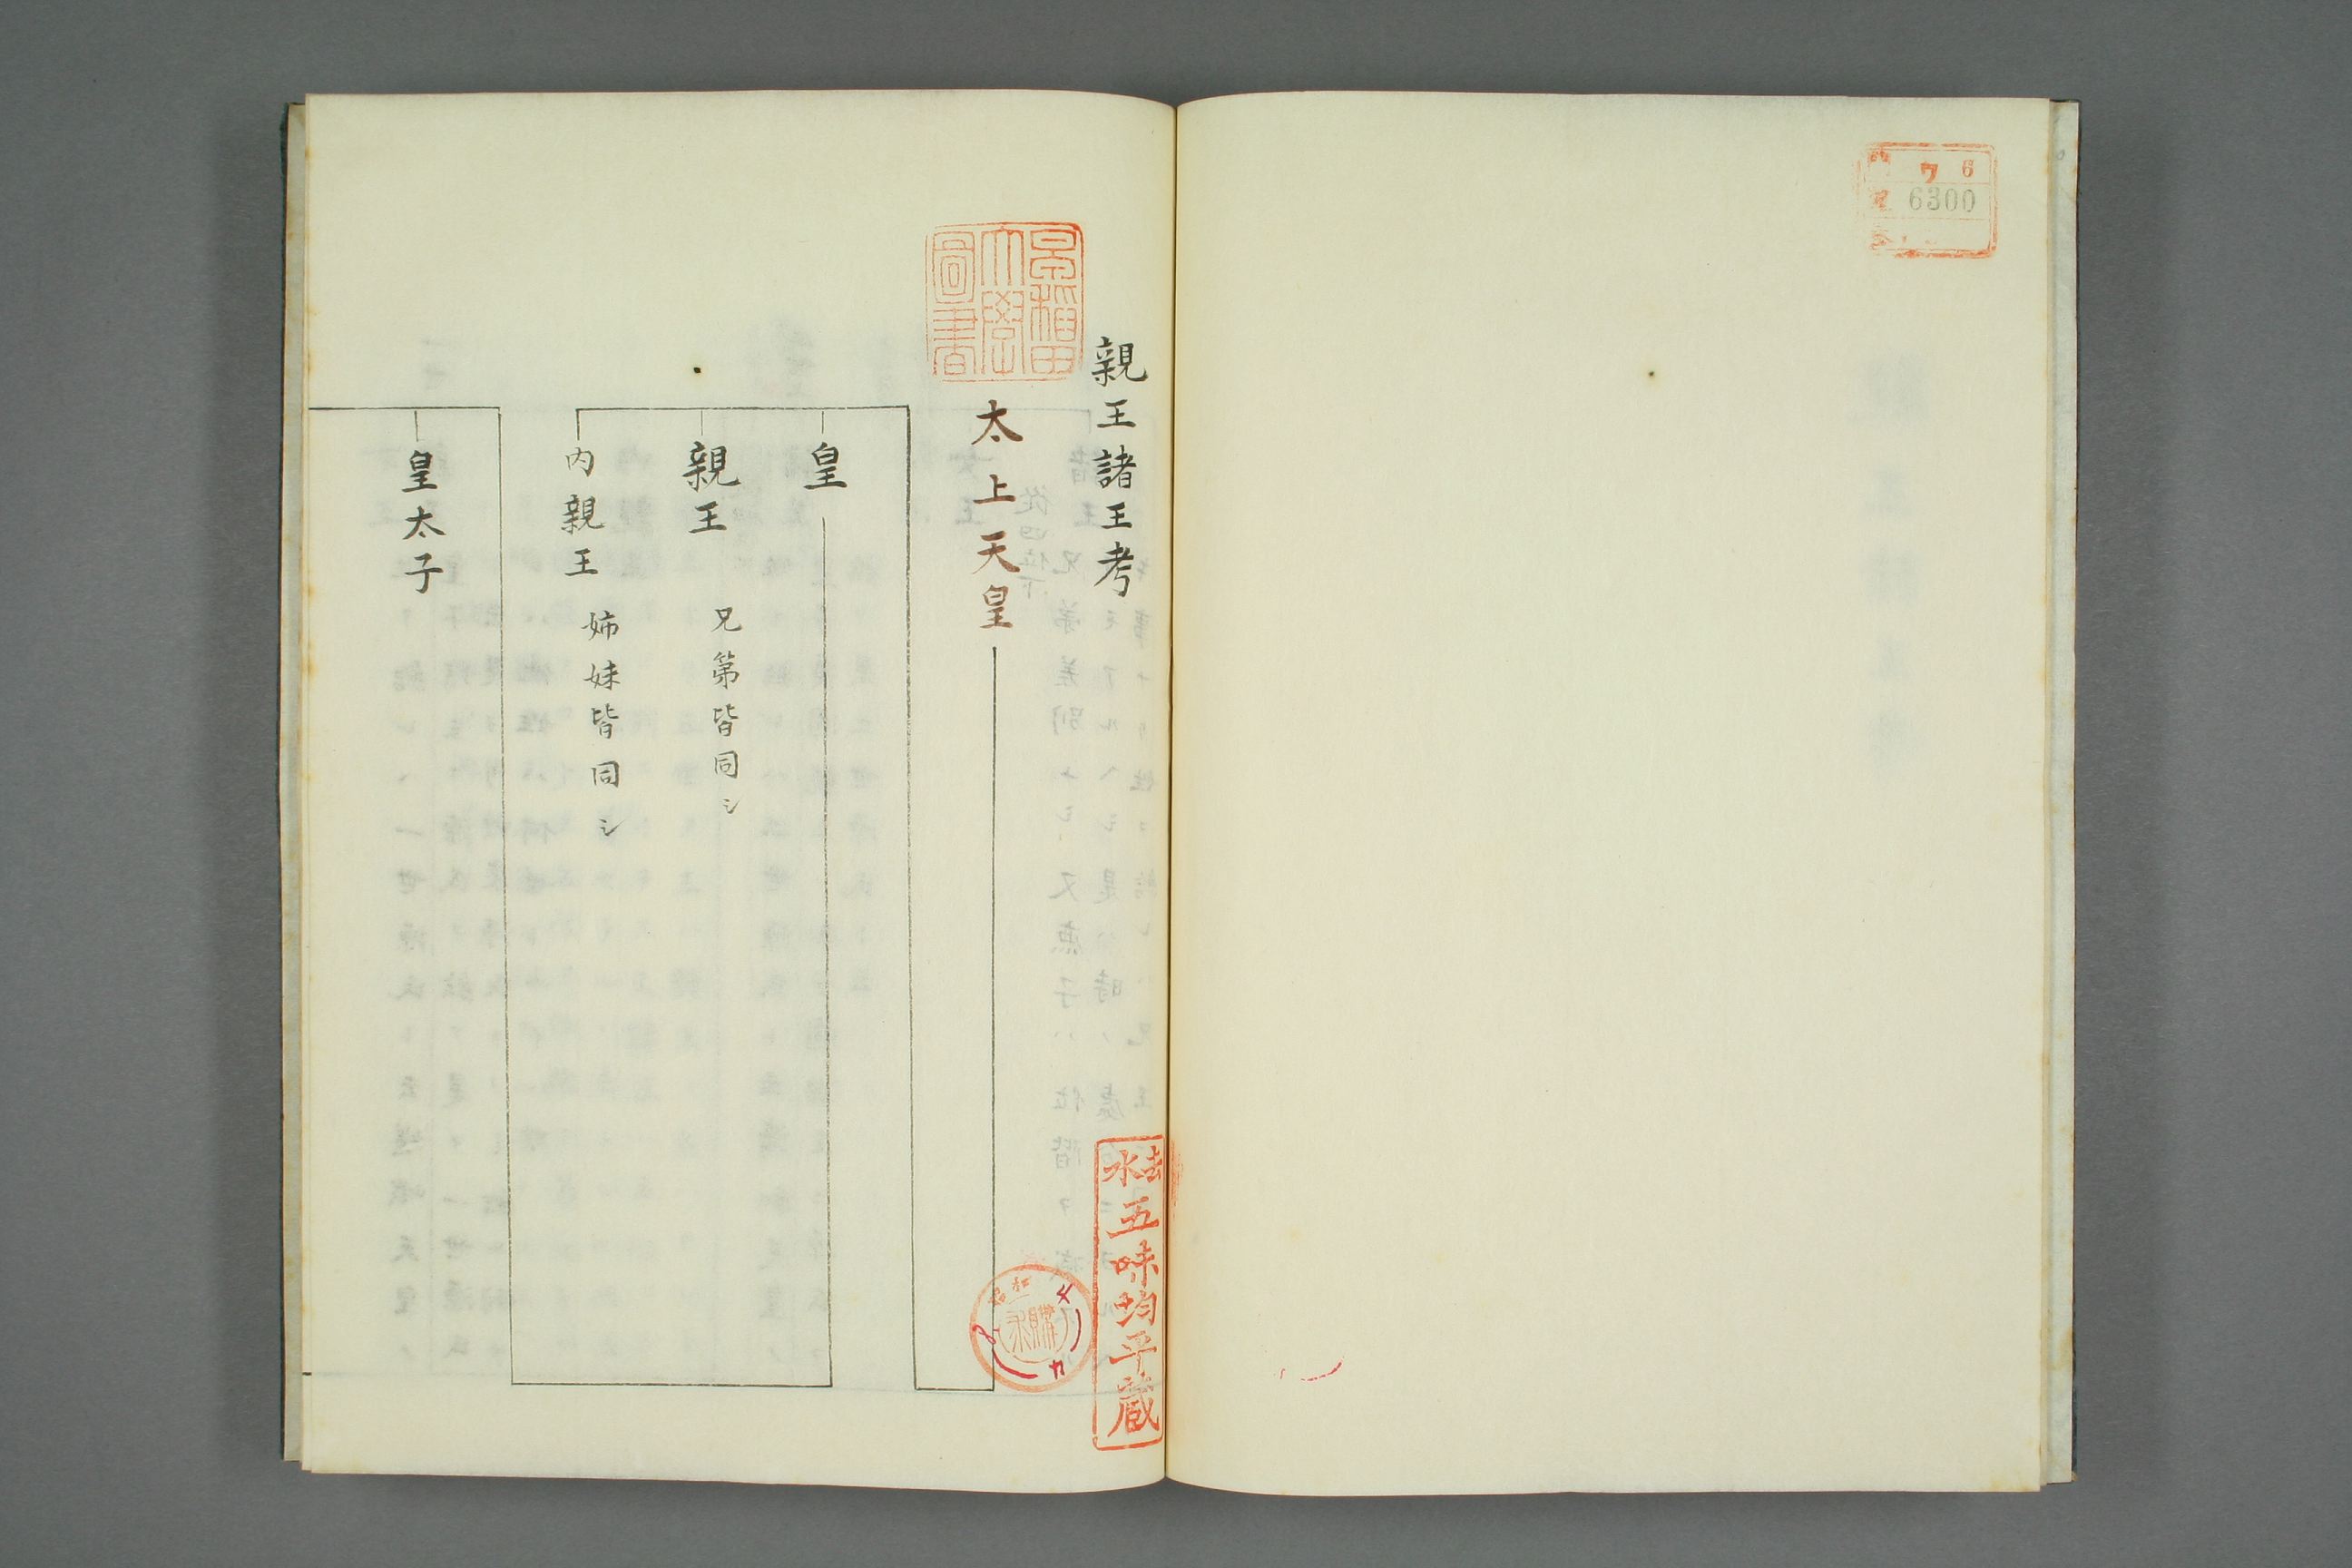 ワ 6
6300
親王諸王考
早稲田大學圖書
太上天皇
皇
親王 兄第皆同シ
内親王 姉妹皆同シ
皇太子
五味均平蔵
購求